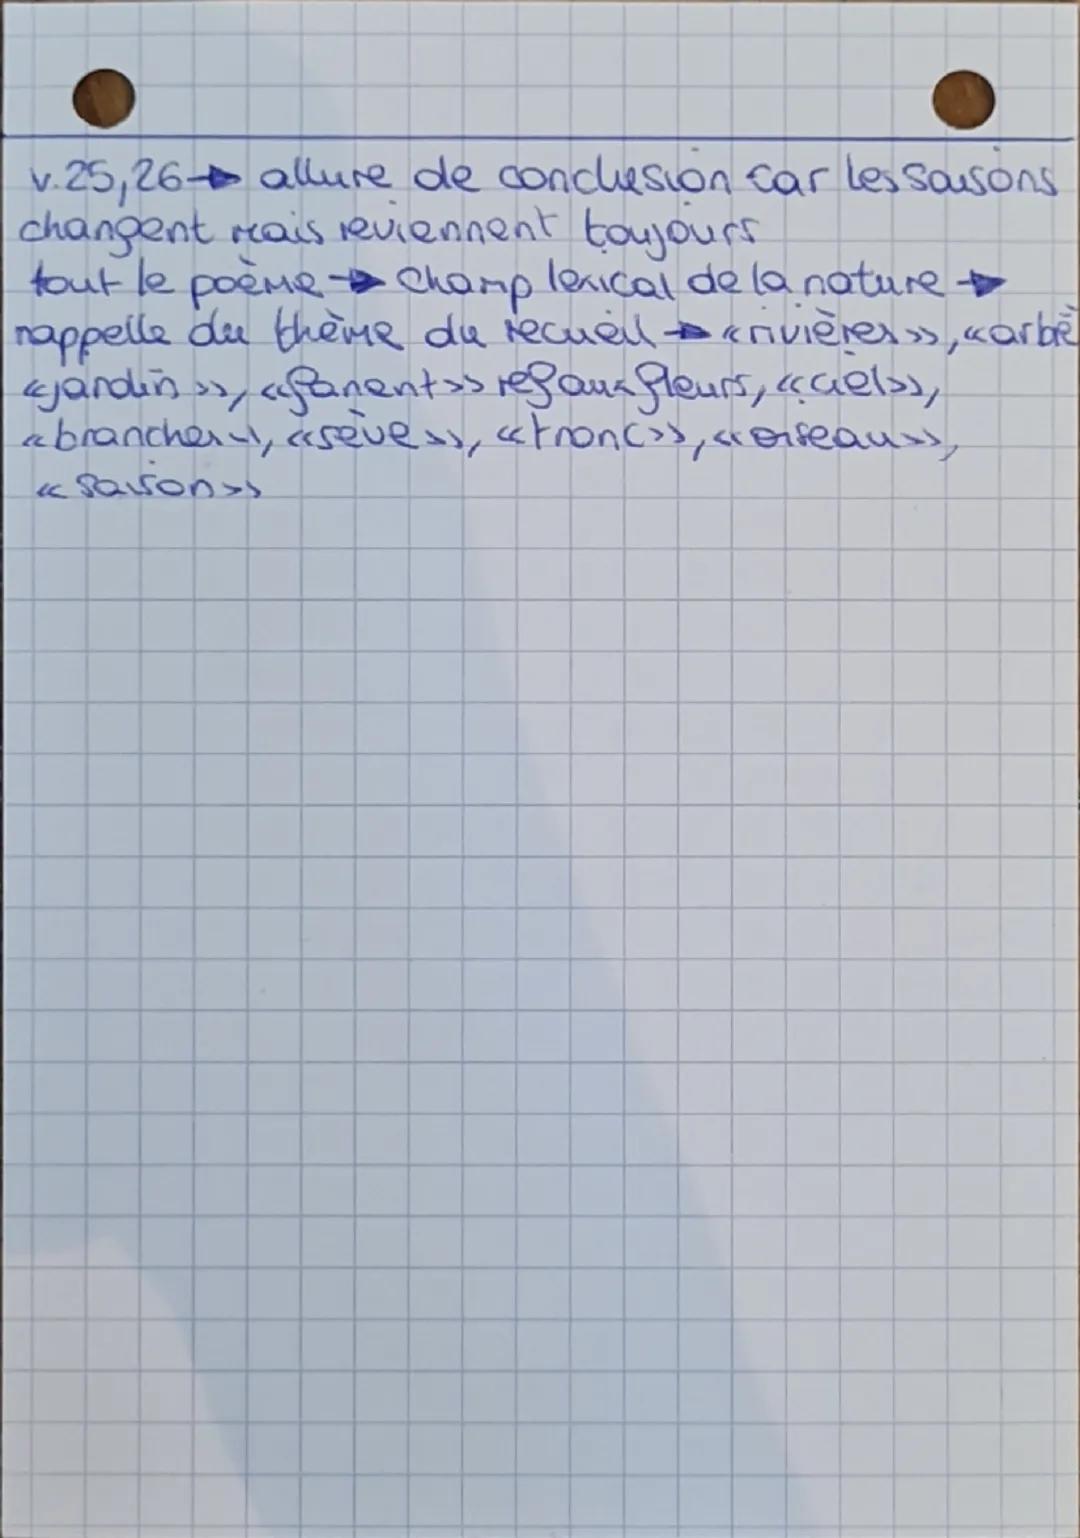 v.25,26→ allure de conclusion car les saisons
changent mais reviennent toujours
tout le poème → Champ lexical de la nature →
rappelle du thème du recueil → «rivières», «arbre
«jardin», «fanent» ref aux fleurs, «ciel»,
«branches», «sève», «tronc», «oiseau»,
«saison»